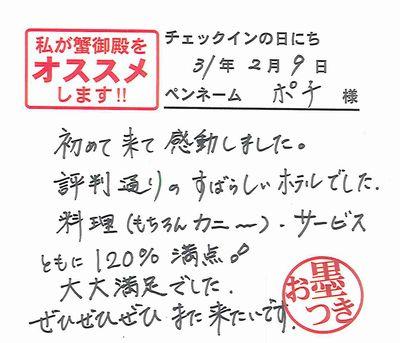 私が蟹御殿を
オススメ
します!!
チェックインの日にち
31年2月9日
ペンネーム ポチ 様
初めて来て感動しました。
評判通りのすばらしいホテルでした.
料理(もちろんカニ〜)・サービス
ともに120%満点。
大大満足でした.
ぜひぜひぜひまた来たいです.
お墨
つき